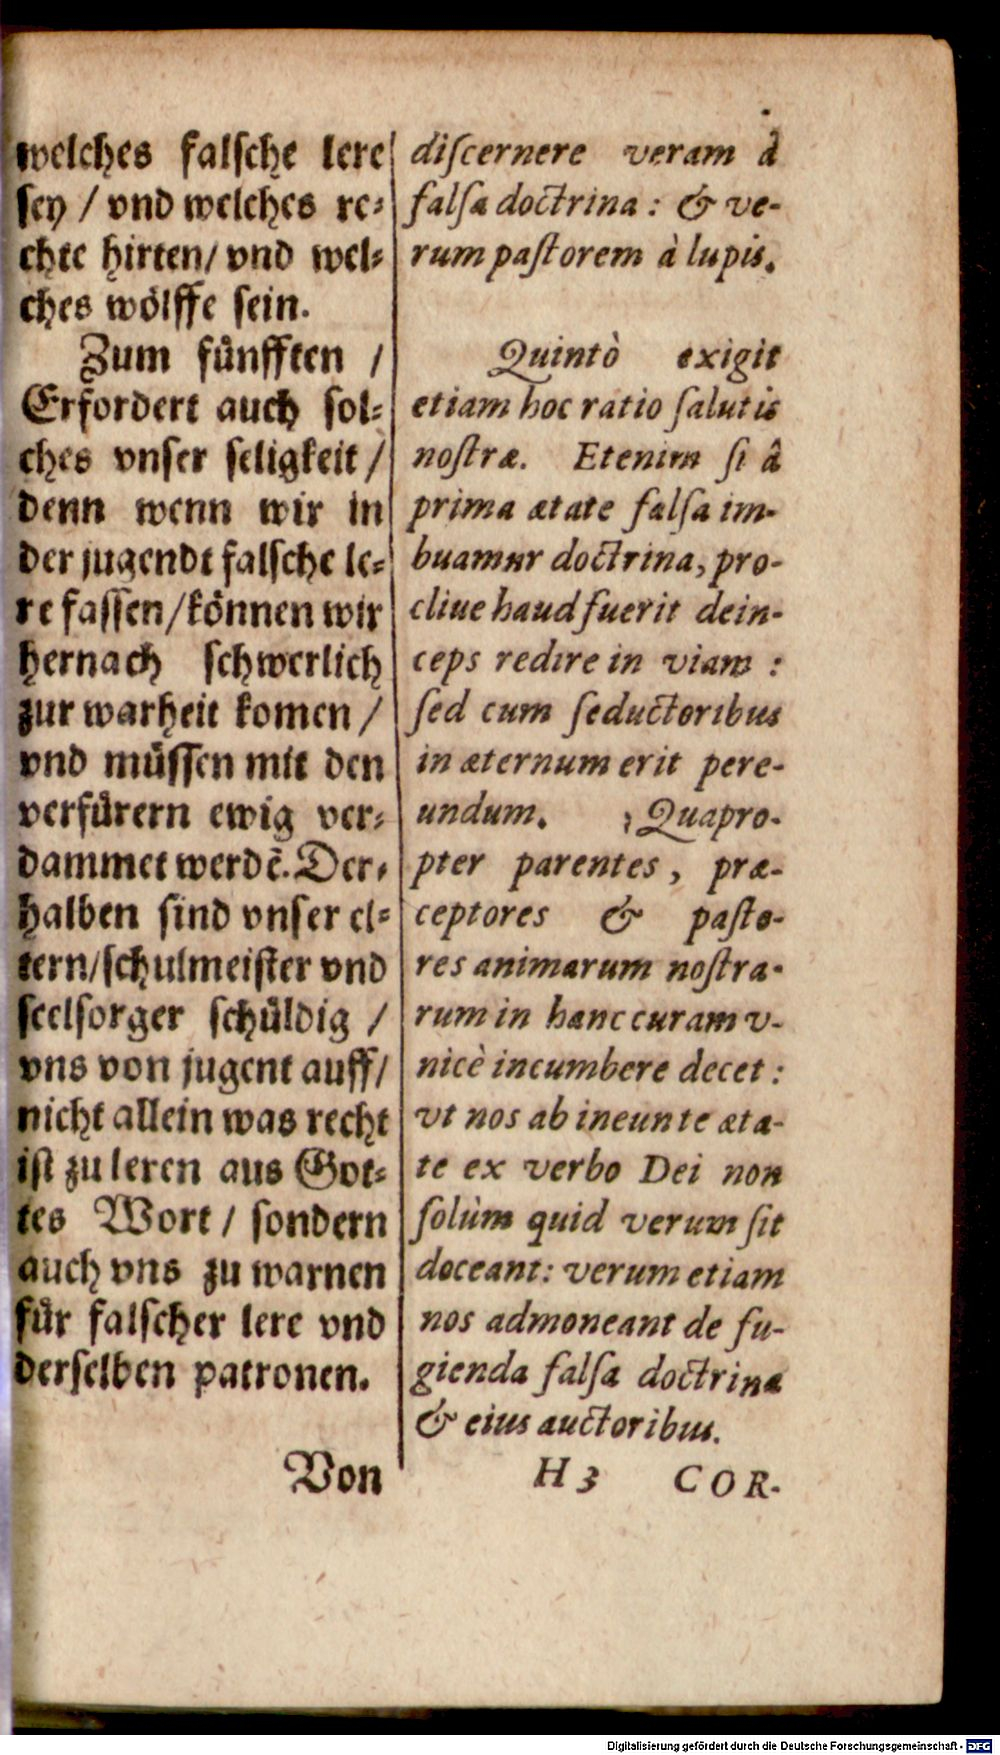 welches falſche lere
ſey / vnd welches re⸗
chte hirten/ vnd wel⸗
ches wölffe ſein.
Zum fünfften /
Erfordert auch ſol⸗
ches vnſer ſeligkeit /
denn wenn wir in
der jugendt falſche le⸗
re faſſen/können wir
hernach ſchwerlich
zur warheit komen /
vnd müſſen mit den
verfürern ewig ver⸗
dammet werdẽ. Der⸗
halben ſind vnſer el⸗
tern/ſchulmeiſter vnd
ſeelſorger ſchüldig /
vns von jugent auff/
nicht allein was recht
iſt zu leren aus Got⸗
tes Wort / ſondern
auch vns zu warnen
für falſcher lere vnd
derſelben patronen.
Von
diſcernere veram à
falſa doctrina : & ve-
rum paſtorem à lupis.
Quintò exigit
etiam hoc ratio ſalutis
noſtræ. Etenim ſi â
prima ætate falſa im-
buamur doctrina, pro-
cliue haud fuerit dein-
ceps redire in viam :
ſed cum ſeductoribus
in æternum erit pere-
undum. Quapro-
pter parentes, præ-
ceptores & paſto-
res animarum noſtra-
rum in hanc curam v-
nicè incumbere decet :
vt nos ab ineunte æta-
te ex verbo Dei non
ſolùm quid verum ſit
doceant: verum etiam
nos admoneant de fu-
gienda falſa doctrina
& eius auctoribus.
H 3 COR-
Digitalisierung gefördert durch die Deutsche Forschungsgemeinschaft - DFG